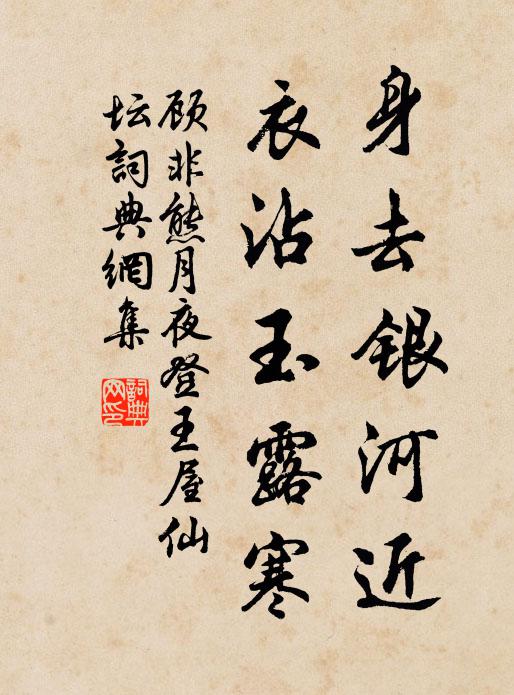 身去银河近
衣沾玉露寒
顾非熊月夜登王屋仙
坛詞典網集
詞典网印